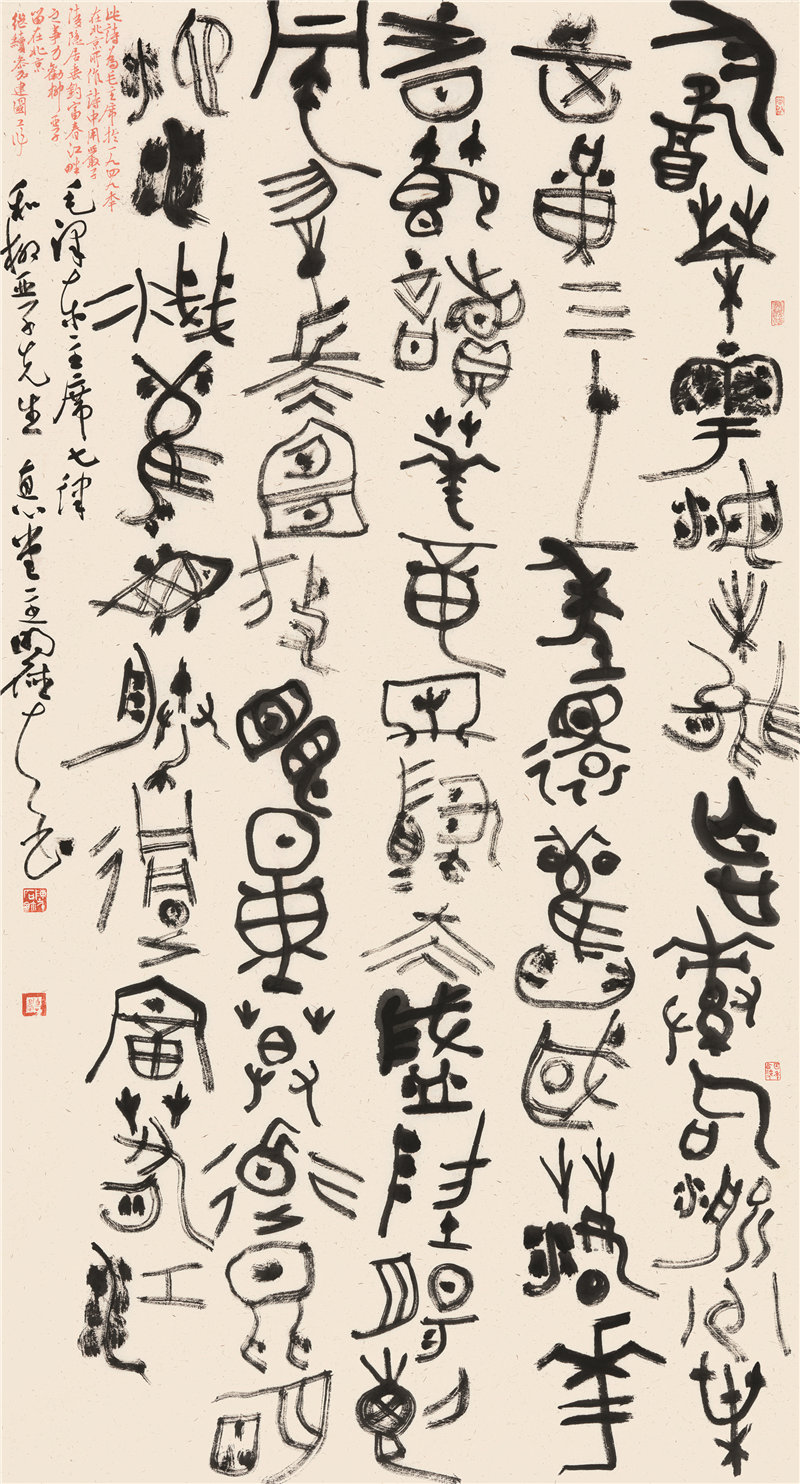 飲茶粵海未能忘索句渝州葉
正黃三十一年還舊國落花
時節讀華章牢騷太盛防腸斷
風物長宜放眼量莫道昆明
池水淺觀魚勝過富春江
此詩為毛主席於一九四九年
在北京所作詩中用嚴子
陵隱居垂釣富春江畔
之事力勸柳亞子
留在北京
繼續參加建國工作
毛澤东主席七律
和柳亚子先生